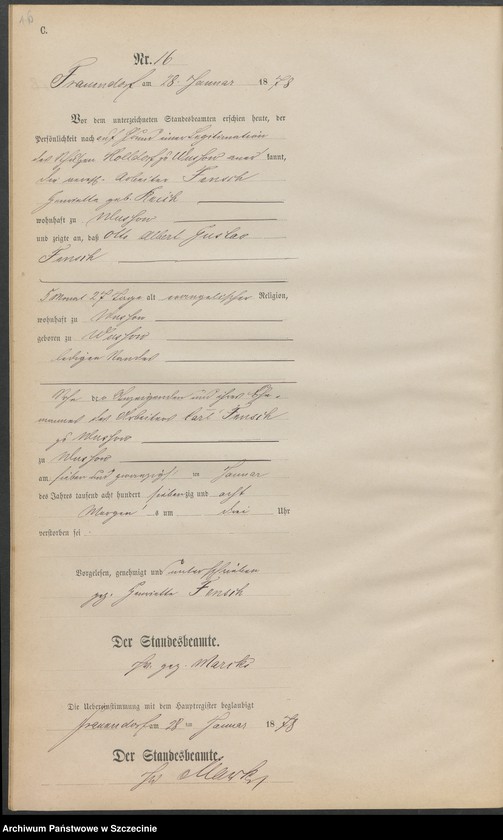 C.
Nr. 16
Frauendorf am 28. Januar 1878
Vor dem unterzeichneten Standesbeamten erschien heute, der
Persönlichkeit nach auf Grund einer Legitimation
des Schulzen Holldorf zu Wussow aner kannt,
die verehl. Arbeiter Fensch
Henriette geb.
wohnhaft zu Wussow
und zeigte an, daß Otto Albert Gustav
Fensch
5 Monat 27 Tage alt evangelischer Religion,
wohnhaft zu Wussow
geboren zu Wussow
ledigen Standes
Sohn der Anzeigenden und ihres Ehe-
mannes des Arbeiters Carl Fensch
zu Wussow
zu Wussow
am sieben und zwanzigsten Januar
des Jahres tausend acht hundert siebenzig und acht
Morgens um drei Uhr
verstorben sei.
Vorgelesen, genehmigt und unterschrieben
gez. Henriette Fensch
Der Standesbeamte.
gez. Marcks
Die Uebereinstimmung mit dem Hauptregister beglaubigt
Frauendorf am 28 ten Januar 1878
Der Standesbeamte.
Marcks
Archiwum Państwowe w Szczecinie